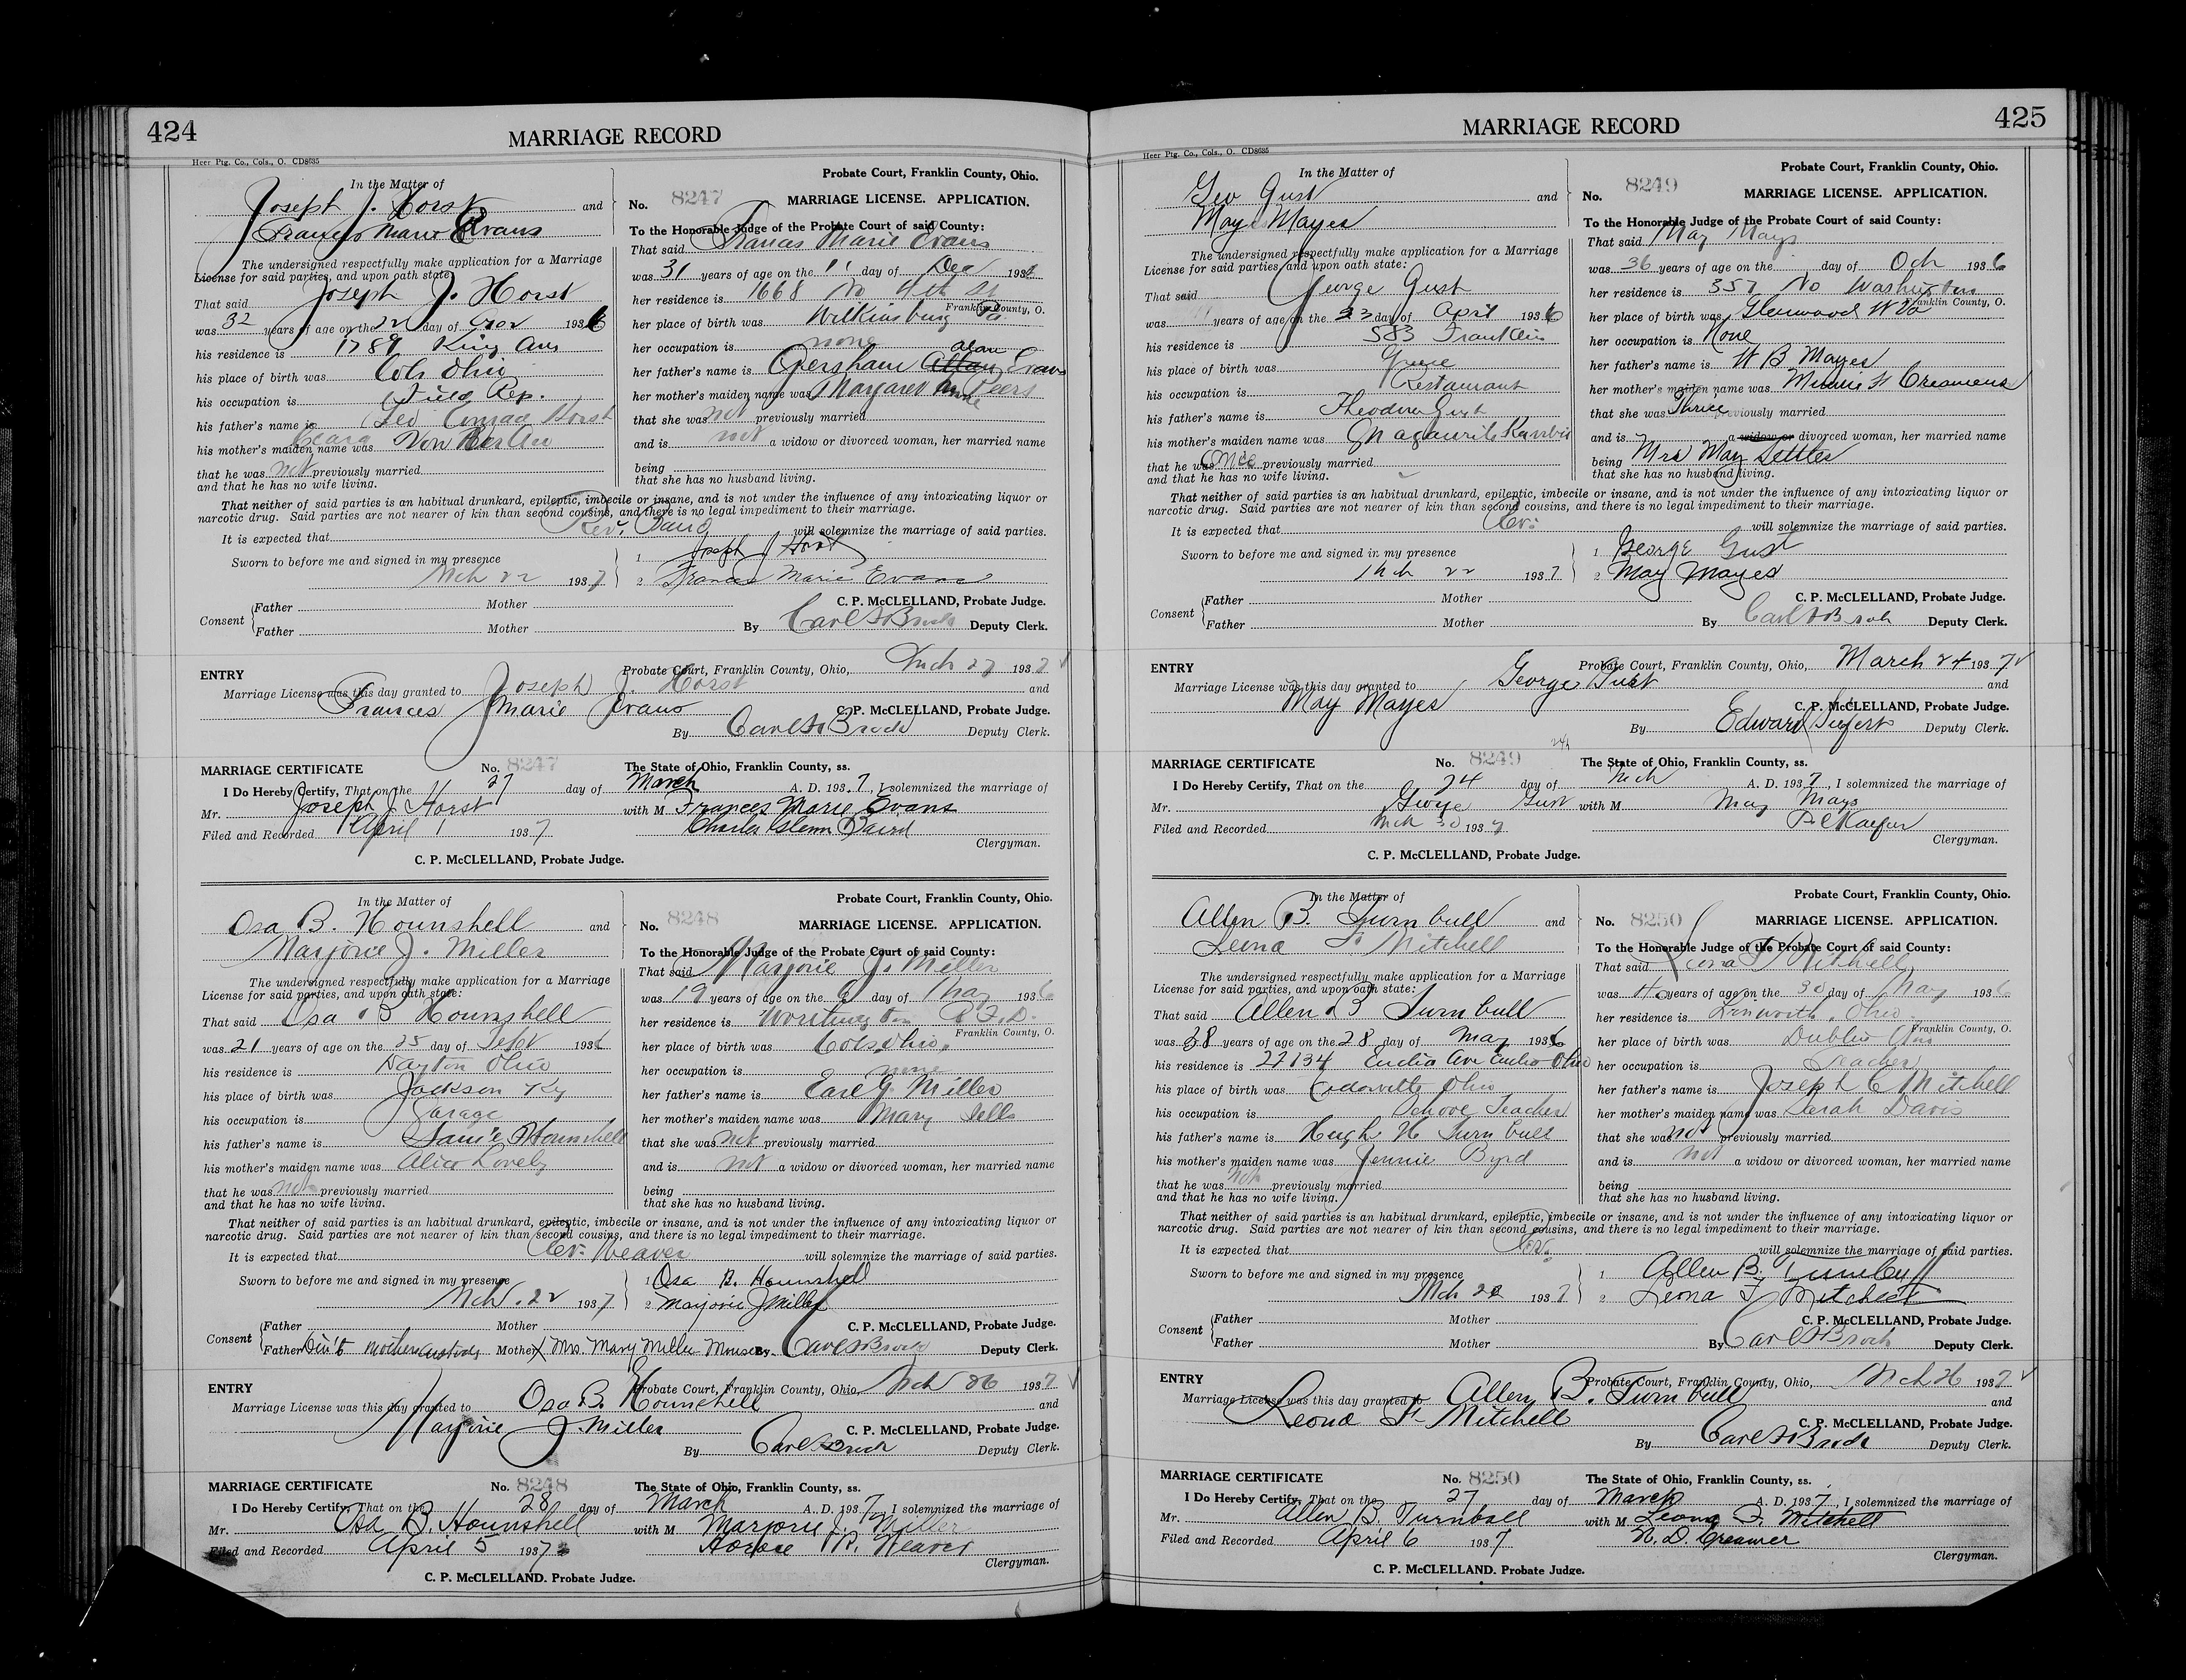 424
MARRIAGE RECORD
Heer Ptg. Co., Cols., O. CD8685
In the Matter of
Joseph J. Horst and
Frances Marie Evans
The undersigned respectfully make application for a Marriage
License for said parties, and upon oath state:
That said Joseph J. Horst
was 32 years of age on the 22 day of 1936
his residence is 1789 King Ave
his place of birth was Cols Ohio
his occupation is Field Rep.
his father's name is Geo Conrad Horst
his mother's maiden name was Clara Von
that he was not previously married
and that he has no wife living.
Probate Court, Franklin County, Ohio.
No. 8247 MARRIAGE LICENSE. APPLICATION.
To the Honorable Judge of the Probate Court of said County:
That said Frances Marie Evans
was 31 years of age on the 11 day of Dec 1936
her residence is 1668 No 4th St
Franklin County, O.
her place of birth was Wilkinsburg Pa.
her occupation is none
her father's name is Gersham Alan Evans
her mother's maiden name was Margaret Peers
that she was not previously married
and is not a widow or divorced woman, her married name
being
that she has no husband living.
That neither of said parties is an habitual drunkard, epileptic, imbecile or insane, and is not under the influence of any intoxicating liquor or
narcotic drug. Said parties are not nearer of kin than second cousins, and there is no legal impediment to their marriage.
It is expected that Rev. Baird will solemnize the marriage of said parties.
Sworn to before me and signed in my presence 1 Joseph J Horst
Mch 22 1937 2 Frances Marie Evans
Consent Father Mother C. P. McCLELLAND, Probate Judge.
Father Mother By Carl A Brock Deputy Clerk.
ENTRY Probate Court, Franklin County, Ohio, Mch 27 1937
Marriage License was this day granted to Joseph J. Horst and
Frances Marie Evans C. P. McCLELLAND, Probate Judge.
By Carl A Brock Deputy Clerk.
MARRIAGE CERTIFICATE No. 8247 The State of Ohio, Franklin County, ss.
I Do Hereby Certify, That on the 27 day of March A. D. 1937, I solemnized the marriage of
Mr. Joseph J. Horst with M Frances Marie Evans
Filed and Recorded April 1 1937 Charles Glenn Baird
Clergyman.
C. P. McCLELLAND, Probate Judge.
In the Matter of
Osa B. Hounshell and
Marjorie J. Miller
The undersigned respectfully make application for a Marriage
License for said parties, and upon oath state:
That said Osa B Hounshell
was 21 years of age on the 25 day of Sept 1936
his residence is Dayton Ohio
his place of birth was Jackson Ky
his occupation is Garage
his father's name is Hounshell
his mother's maiden name was Alice Lovely
that he was not previously married
and that he has no wife living.
Probate Court, Franklin County, Ohio.
No. 8248 MARRIAGE LICENSE. APPLICATION.
To the Honorable Judge of the Probate Court of said County:
That said Marjorie J. Miller
was 19 years of age on the 9 day of May 1936
her residence is Worthington R.F.D.
Franklin County, O.
her place of birth was Cols Ohio.
her occupation is none
her father's name is Earl G. Miller
her mother's maiden name was Mary Sells
that she was not previously married
and is not a widow or divorced woman, her married name
being
that she has no husband living.
That neither of said parties is an habitual drunkard, epileptic, imbecile or insane, and is not under the influence of any intoxicating liquor or
narcotic drug. Said parties are not nearer of kin than second cousins, and there is no legal impediment to their marriage.
It is expected that Rev. Weaver will solemnize the marriage of said parties.
Sworn to before me and signed in my presence 1 Osa B. Hounshell
Mch. 22 1937 2 Marjorie J Miller
Consent Father Mother C. P. McCLELLAND, Probate Judge.
Father Mothers custody Mother X Mrs. Mary Miller By Carl A Brock Deputy Clerk.
ENTRY Probate Court, Franklin County, Ohio, Mch 26 1937
Marriage License was this day granted to Osa B. Hounshell and
Marjorie J Miller C. P. McCLELLAND, Probate Judge.
By Carl A Brock Deputy Clerk.
MARRIAGE CERTIFICATE No. 8248 The State of Ohio, Franklin County, ss.
I Do Hereby Certify, That on the 28 day of March A. D. 1937, I solemnized the marriage of
Mr. Osa B. Hounshell with M Marjorie J. Miller
Filed and Recorded April 5 1937 Horace R. Weaver
Clergyman.
C. P. McCLELLAND. Probate Judge.
425
MARRIAGE RECORD
Heer Ptg. Co., Cols., O. CD8685
In the Matter of
Geo Gust and
May Mayes
The undersigned respectfully make application for a Marriage
License for said parties, and upon oath state:
That said George Gust
was years of age on the 23 day of April 1936
his residence is 583 Franklin
his place of birth was Greece
his occupation is Restaurant
his father's name is Theodore Gust
his mother's maiden name was
that he was Once previously married
and that he has no wife living.
Probate Court, Franklin County, Ohio.
No. 8249 MARRIAGE LICENSE. APPLICATION.
To the Honorable Judge of the Probate Court of said County:
That said May Mays
was 36 years of age on the day of Oct 1936
her residence is 357 No Washington
Franklin County, O.
her place of birth was Glenwood W Va
her occupation is None
her father's name is W B Mayes
her mother's maiden name was Minnie Creamens
that she was Thrice previously married
and is a widow or divorced woman, her married name
being Mrs May Settles
that she has no husband living.
That neither of said parties is an habitual drunkard, epileptic, imbecile or insane, and is not under the influence of any intoxicating liquor or
narcotic drug. Said parties are not nearer of kin than second cousins, and there is no legal impediment to their marriage.
It is expected that Rev. will solemnize the marriage of said parties.
Sworn to before me and signed in my presence 1 George Gust
Mch 22 1937 2 May Mayes
Consent Father Mother C. P. McCLELLAND, Probate Judge.
Father Mother By Carl A Brock Deputy Clerk.
ENTRY Probate Court, Franklin County, Ohio, March 24 1937
Marriage License was this day granted to George Gust and
May Mayes C. P. McCLELLAND, Probate Judge.
By Edward Deputy Clerk.
MARRIAGE CERTIFICATE No. 8249 The State of Ohio, Franklin County, ss.
I Do Hereby Certify, That on the 24 day of Mch A. D. 1937, I solemnized the marriage of
Mr. George Gust with M May Mays
Filed and Recorded Mch 30 1937
Clergyman.
C. P. McCLELLAND, Probate Judge.
In the Matter of
Allen B. Turnbull and
Leona F. Mitchell
The undersigned respectfully make application for a Marriage
License for said parties, and upon oath state:
That said Allen B Turnbull
was 38 years of age on the 28 day of May 1936
his residence is 22134 Euclid Ave Euclid Ohio
his place of birth was Cedarville Ohio
his occupation is School Teacher
his father's name is Hugh H Turnbull
his mother's maiden name was Jennie Byrd
that he was not previously married
and that he has no wife living.
Probate Court, Franklin County, Ohio.
No. 8250 MARRIAGE LICENSE. APPLICATION.
To the Honorable Judge of the Probate Court of said County:
That said Leona F Mitchell
was 40 years of age on the 30 day of May 1936
her residence is Linworth, Ohio
Franklin County, O.
her place of birth was Dublin Ohio
her occupation is Teacher
her father's name is Joseph C Mitchell
her mother's maiden name was Sarah Davis
that she was not previously married
and is not a widow or divorced woman, her married name
being
that she has no husband living.
That neither of said parties is an habitual drunkard, epileptic, imbecile or insane, and is not under the influence of any intoxicating liquor or
narcotic drug. Said parties are not nearer of kin than second cousins, and there is no legal impediment to their marriage.
It is expected that Rev. will solemnize the marriage of said parties.
Sworn to before me and signed in my presence 1 Allen B. Turnbull
Mch 22 1937 2 Leona F. Mitchell
Consent Father Mother C. P. McCLELLAND, Probate Judge.
Father Mother By Carl A Brock Deputy Clerk.
ENTRY Probate Court, Franklin County, Ohio, Mch 26 1937
Marriage License was this day granted to Allen B. Turnbull and
Leona F. Mitchell C. P. McCLELLAND, Probate Judge.
By Carl A Brock Deputy Clerk.
MARRIAGE CERTIFICATE No. 8250 The State of Ohio, Franklin County, ss.
I Do Hereby Certify, That on the 27 day of March A. D. 1937, I solemnized the marriage of
Mr. Allen B. Turnbull with M Leona F. Mitchell
Filed and Recorded April 6 1937 N. D. Creamer
Clergyman.
C. P. McCLELLAND. Probate Judge.